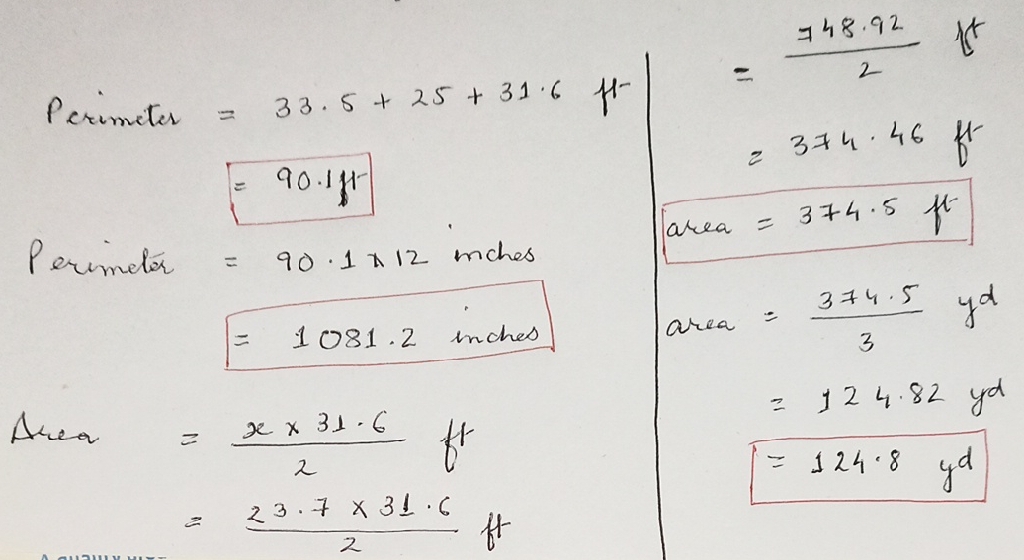 Perimeter = 33.5 + 25 + 31.6 ft
= 90.1 ft
Perimeter = 90.1 x 12 inches
= 1081.2 inches
Area = x × 31.6 / 2 ft
= 23.7 × 31.6 / 2 ft
= 748.92 / 2 ft
= 374.46 ft
area = 374.5 ft
area = 374.5 / 3 yd
= 124.82 yd
= 124.8 yd